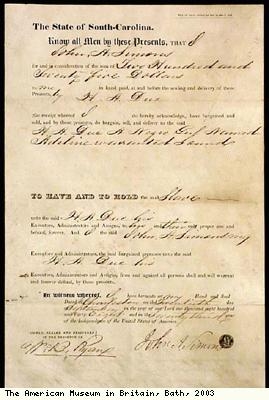 The State of South-Carolina.
Know all Men by these Presents, THAT I
John A. Simons
for and in consideration of the sum of Five Hundred and
Seventy five Dollars
to me in hand paid, at and before the sealing and delivery of these
Presents, by H. H. Due
the receipt whereof I do hereby acknowledge, have bargained and
sold, and by these presents, do bargain, sell, and deliver to the said
H. H. Due A Negro Girl Named
Adeline warranted Sound
TO HAVE AND TO HOLD the said Slave
unto the said H. H. Due his
Executors, Administrators and Assigns, to his and their only proper use and
behoof, forever. And I the said John A. Simons my
Executors and Administrators, the said bargained premises unto the said
H. H. Due his
Executors, Administrators and Assigns, from and against all persons shall and will warrant
and forever defend, by these presents.
In witness whereof, I have hereunto set my Hand and Seal
Dated at Charleston on the day
in the year of our Lord one thousand eight hundred
and Forty Eight and in the year
of the Independence of the United States of America.
SIGNED, SEALED AND DELIVERED
IN THE PRESENCE OF
John A. Simons
The American Museum in Britain; Bath, 2003